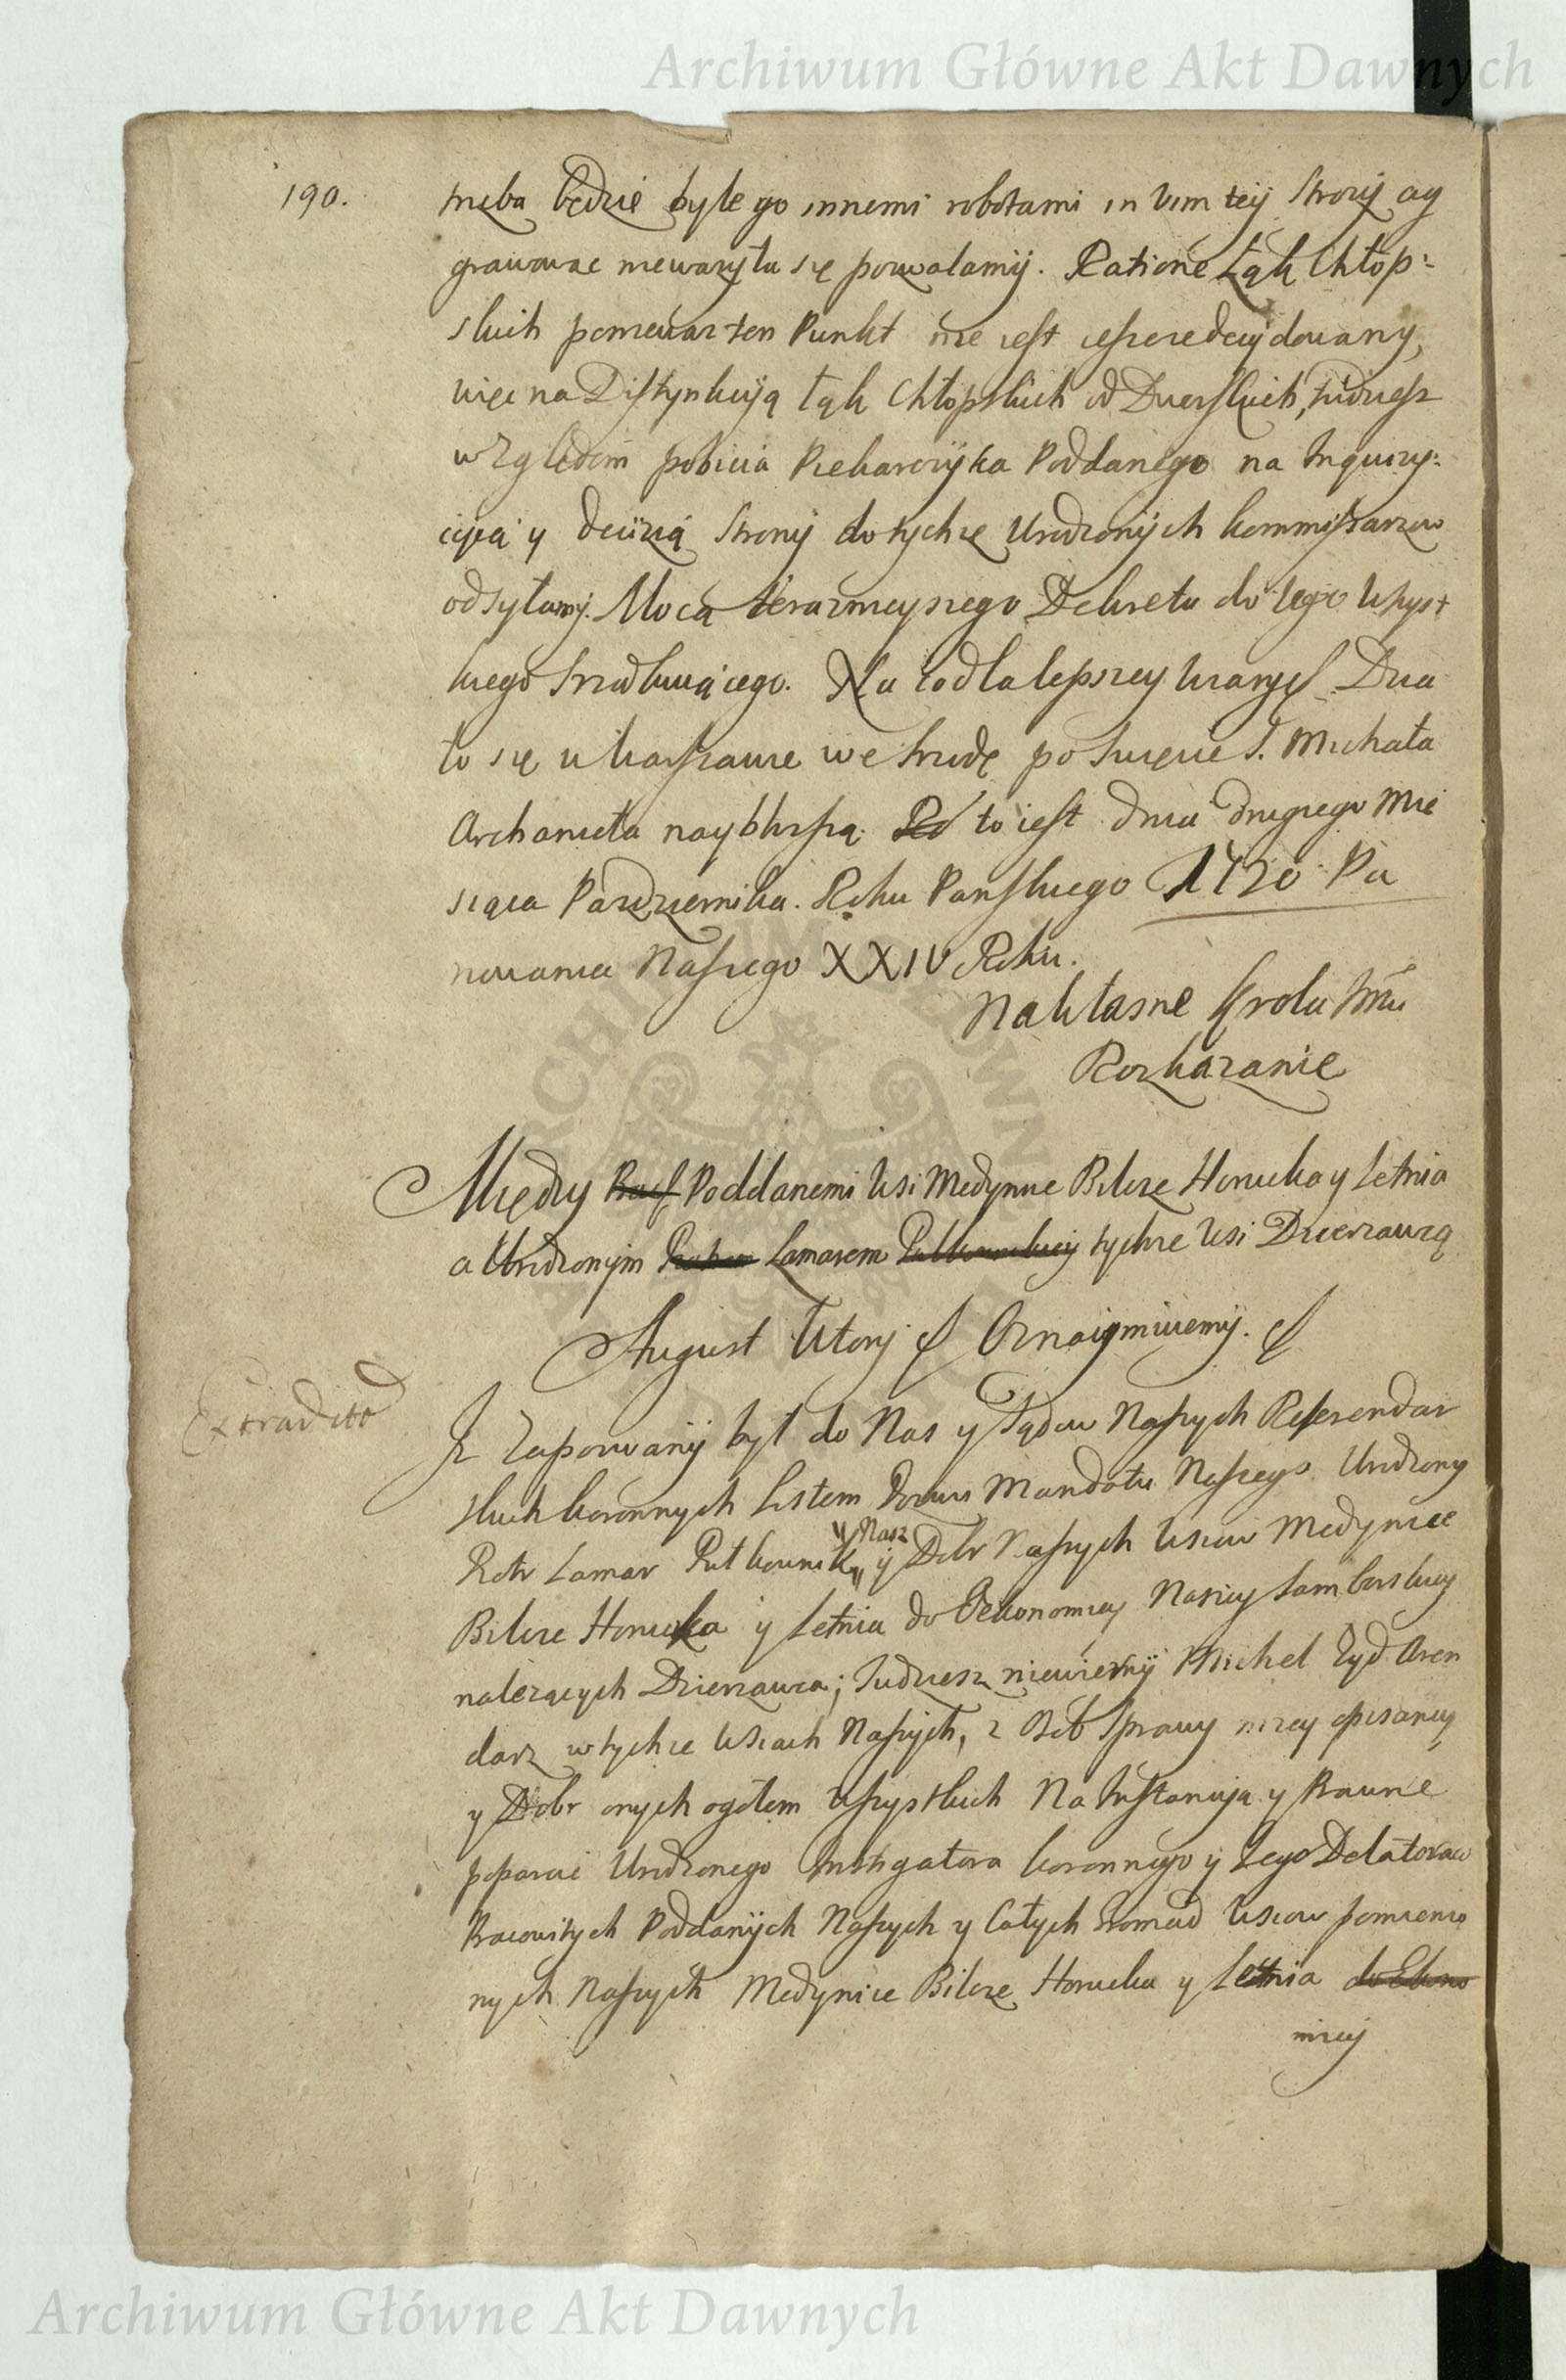 Archiwum Główne Akt Dawnych
190.
trzeba będzie byle go innemi robotami in vim teij Strozij ag
grawowac niewazyła się pozwalamij. Ratione Łąk Chłop:
skich poniewaz ten Punkt nie iest ieszcze decijdowany,
więc na Distynkcyią Łąk Chłopskich od Dworskich, tudziesz
względem pobicia Piekarczyka Poddanego na Inquizy:
cyią y decizią Stronij do tychze Urodzonijch Kommissarzow
odsyłamij. Mocą terazniejszego Dekretu do tego wszyst
kiego srzodkuiącego. Na co dla lepszey wiary Dzia
ło się w Warszawie we srzodę po Swięcie S. Michała
Archanioła naybliszą to iest dnia drugiego Mie
siąca Pazdziernika. Roku Panskiego 1720 Pa
nowania Naszego XXIV Roku.
Na własne Krola Jmci
Rozkazanie
Między Poddanemi Wsi Medynice Bilcze Horucko y Letnia
a Urodzonijm Lamarem tychze Wsi Dzierzawcą
August Wtory Oznaijmiuiemij.
Extraditod
Jz Zapozwanij był do Nas y Sądow Naszych Referendar
skich koronnych Listem Pozwu Mandatu Naszego Urodzony
Nasz
Piotr Lamar Pułkownik y Dobr Naszych Wsiow Medynice
Bilcze Horucko y Letnia do Oekonomiey Naszey Samborskiey
nalezących Dzierzawca; Tudziesz niewiernij Michel Zyd Aren
darz w tychze Wsiach Naszych, z Osob Sprawy nizey opisaney
y Dobr onych ogołem Wszystkich Na Instancyią y Prawne
poparcie Urodzonego Instigatora koronnego y Jego Delatorow
Pracowitych Poddanijch Naszych y Całych Gromad Wsiow pomienio
nych Naszych Medynice Bilcze Horucko y Letnia do Ekono
miey
Archiwum Główne Akt Dawnych